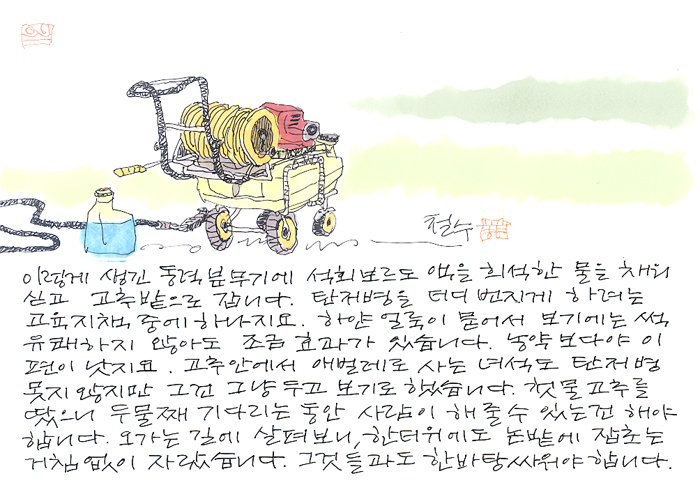 철수
이렇게 생긴 동력분무기에 석회보르도 액을 희석한 물을 채워
싣고 고추밭으로 갑니다. 탄저병을 더디 번지게 하려는
고육지책 중에 하나지요. 하얀 얼룩이 묻어서 보기에는 썩
유쾌하지 않아도 조금 효과가 있습니다. 농약보다야 이
편이 낫지요. 고추안에서 애벌레로 사는 녀석도 탄저병
못지 않지만 그건 그냥 두고 보기로 했습니다. 첫물고추를
땄으니 두물째 기다리는 동안 사람이 해줄 수 있는건 해야
합니다. 오가는 길에 살펴보니, 한더위에도 논밭에 잡초는
거침없이 자랐습니다. 그것들과도 한바탕 싸워야 합니다.